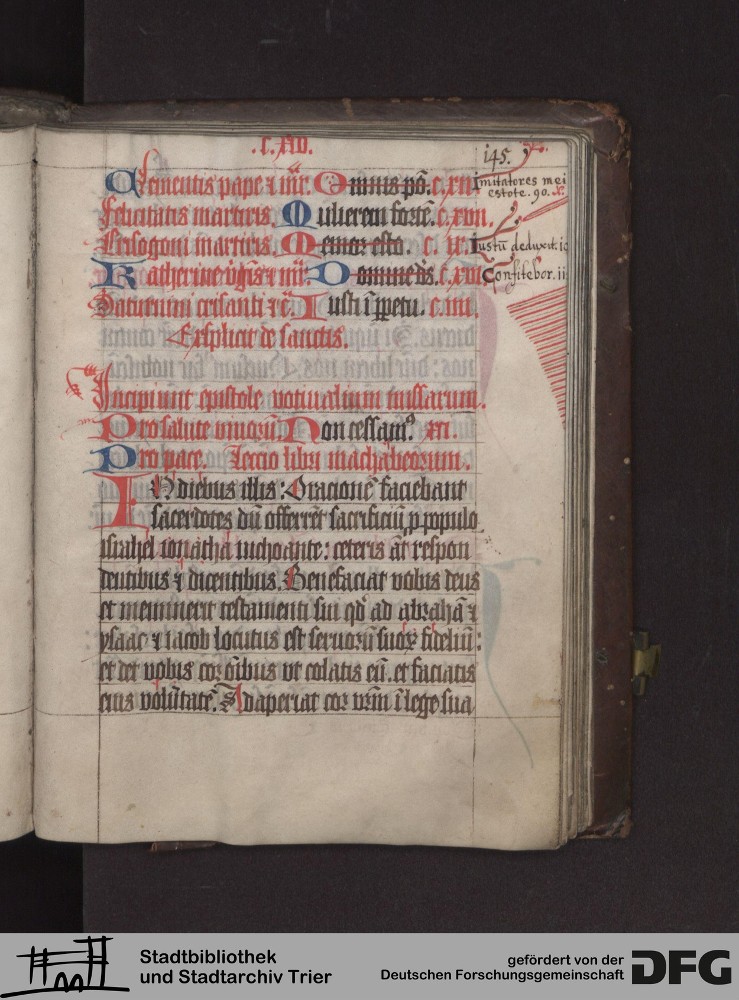 .c.xlv.
145.
Clementis pape ⁊ mr̄. Omnis põ. c. xiii.
Imitatores mei
estote. 90.
Felicitatis martiris. Mulierem fortē. c. xvii.
Crisogoni martiris. Memor esto. c. ix.
Iustū deduxit. 10
Katherine v̄gīs ⁊ mr̄. Domine d̄s. c. xvii
Confitebor. ii
Saturnini crisanti ⁊ c̄. Iusti ī ꝑpetu. c. iiii.
Explicit de sanctis.
Incipiunt epistole votiualium missarum.
Pro salute viuorū. Non cessamꝰ. xvi.
Pro pace. Leccio libri machabeorum.
IN diebus illis: Oracionē faciebant
sacerdotes dū offerrēt sacrificiū ꝓ populo
israhel ionatha inchoante: ceteris āt respon
dentibus ⁊ dicentibus. Benefaciat vobis deus
et meminerit testamenti sui qd̄ ad abrahā ⁊
ysaac ⁊ iacob locutus est seruorū suoꝝ fideliū:
et det vobis cor oībus vt colatis eū. et faciatis
eius volūtatē. Adaperiat cor vr̄m ī lege sua
Stadtbibliothek
und Stadtarchiv Trier
gefördert von der
Deutschen Forschungsgemeinschaft
DFG